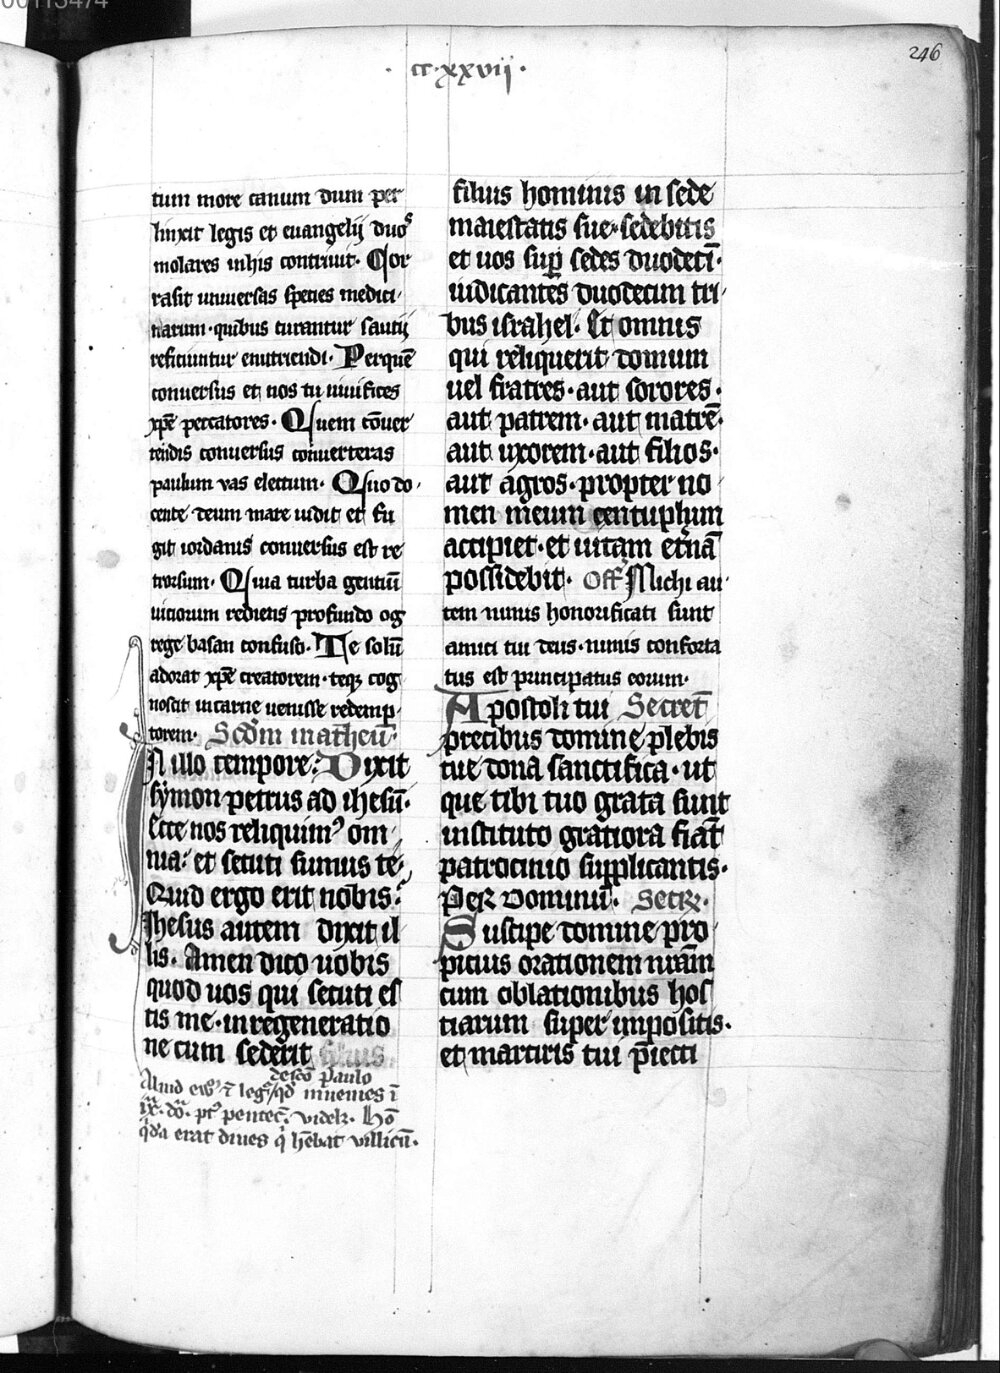 00113474
246
·cc·xxvij·
tum more canum dum per
linxit legis et euangelij duos
molares in his contriuit· Cor
rasit uniuersas species medici
narum·quibus curantur saucij
reficiuntur enutriendi· Per quē
conuersus et nos tu uiuifices
xp̄e peccatores· Quem cōuer
tendis conuersus conuerteras
paulum vas electum· Quo do
cente deum mare uidit et fu
git iordanis conuersus est re
trorsum· Quia turba gentiū
uiciorum rediens profundo og
rege basan confuso· Te solū
adorat xp̄e creatorem·teqꝫ cog
noscit in carne uenisse redemp
torem· Scdm matheū·
In illo tempore: Dixit
symon petrus ad ihesū·
Ecce nos reliquimꝰ om
nia: et secuti sumus te·
Quid ergo erit nobis?
Ihesus autem dixit il
lis· Amen dico uobis
quod uos qui secuti es
tis me·in regeneratio
ne cum sederit filius
de scō paulo
Aliud ewꝰ
inuenies ī
ix· do· pꝰ pentec̄· Videlꝫ· Hō
q̇dā erat diues q̇ hēbat villicū·
filius hominis in sede
maiestatis sue·sedebitis
et uos suꝑ sedes duodecī·
iudicantes duodecim tri
bus israhel· Et omnis
qui reliquerit domum
uel fratres·aut sorores·
aut patrem·aut matrē·
aut uxorem·aut filios·
aut agros·propter no
men meum centuplum
accipiet·et uitam et̄nā
possidebit· Off̄ Michi au
tem nimis honorificati sunt
amici tui deus·nimis conforta
tus est principatus eorum·
Apostoli tui Secret̄
precibus domine plebis
tue dona sanctifica·ut
que tibi tuo grata sunt
instituto gratiora fiāt
patrocinio supplicantis·
Per dominū· Secrꝫ·
Suscipe domine pro
picius orationem nr̄am
cum oblationibus hos
tiarum super impositis·
et martiris tui p̄iecti